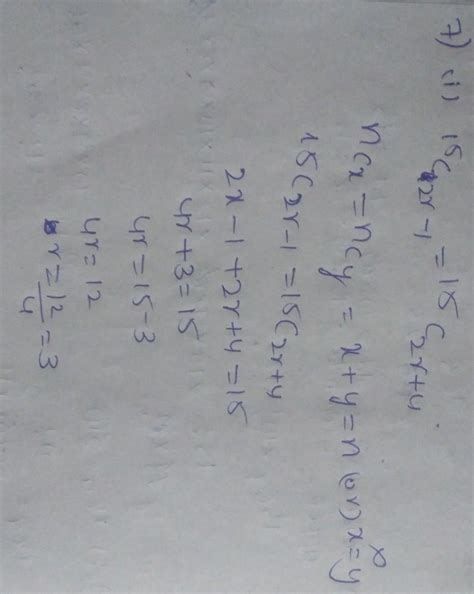 7) (i) 15C2r-1 = 15C2r+4
nCx = nCy = x+y=n (or) x=y
15C2r-1 = 15C2r+4
2r-1+2r+4=15
4r+3=15
4r=15-3
4r=12
r=12/4=3